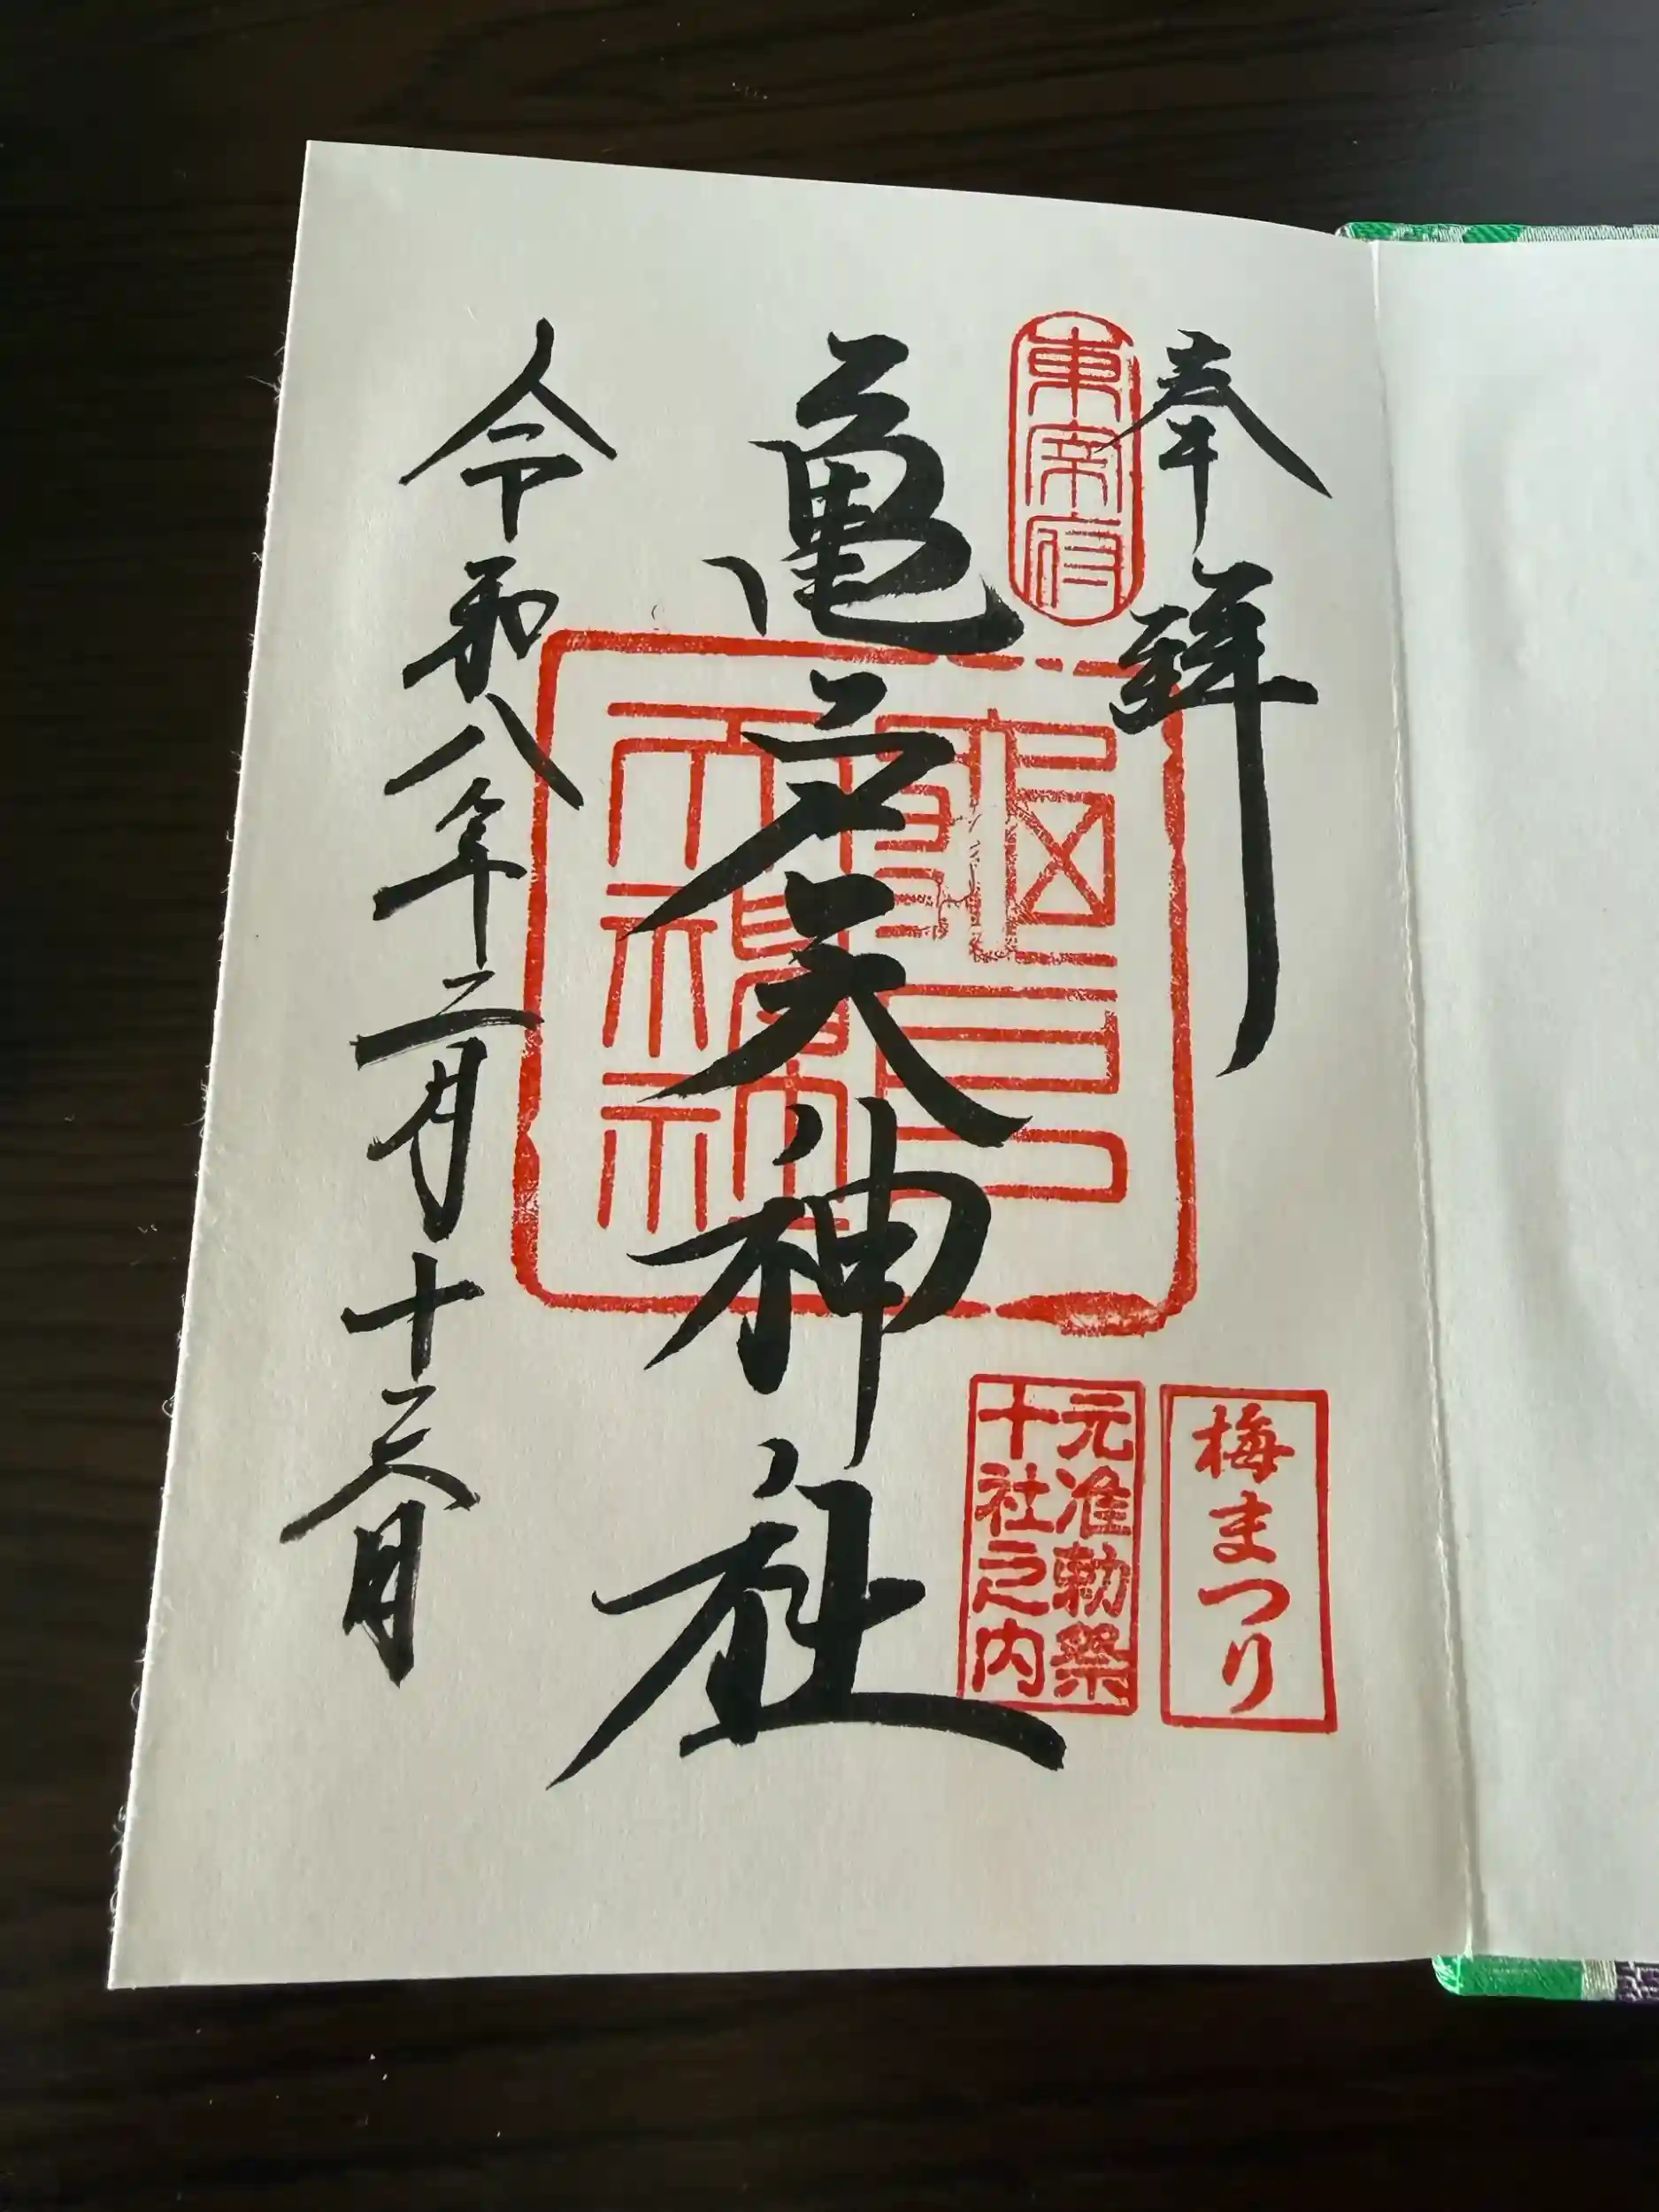 奉拝
東宰府
梅まつり
元准勅祭
十社之内
亀戸天神社
令和八年二月十六日